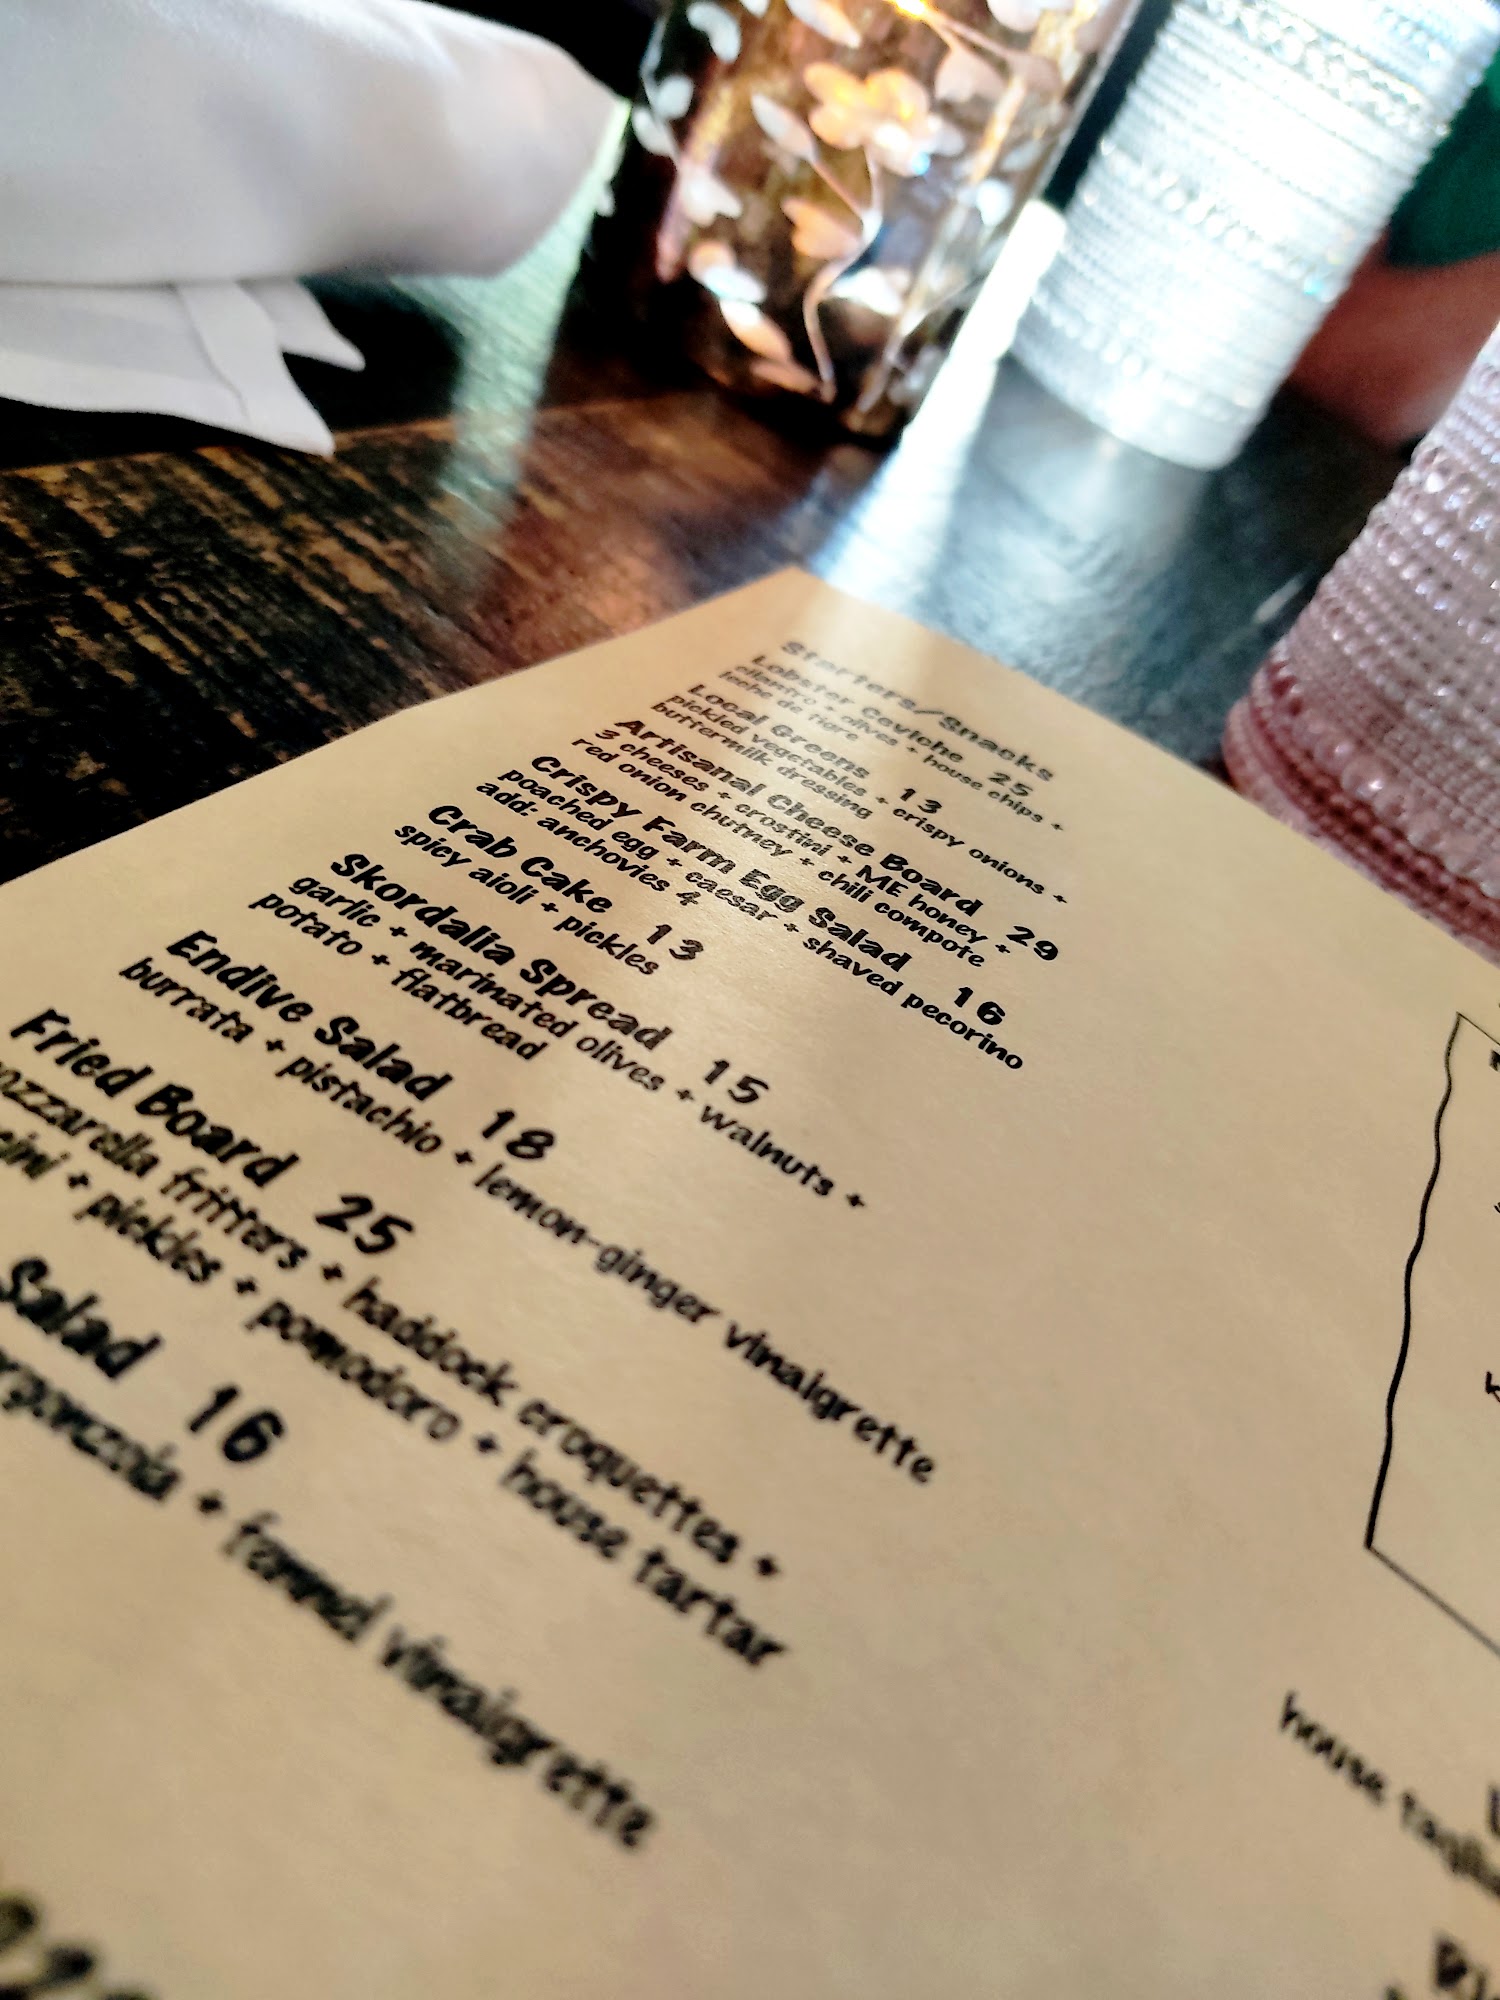 Starters/Snacks
Lobster Ceviche 25
cilantro + olives + house chips +
leche de tigre
Local Greens 13
pickled vegetables + crispy onions +
buttermilk dressing
Artisanal Cheese Board 29
3 cheeses + crostini + ME honey +
red onion chutney + chili compote
Crispy Farm Egg Salad 16
poached egg + caesar + shaved pecorino
add: anchovies 4
Crab Cake 13
spicy aioli + pickles
Skordalia Spread 15
garlic + marinated olives + walnuts +
potato + flatbread
Endive Salad 18
burrata + pistachio + lemon-ginger vinaigrette
Fried Board 25
fritters + haddock croquettes +
+ pickles + pomodoro + house tartar
Salad 16
+ fennel vinaigrette
house